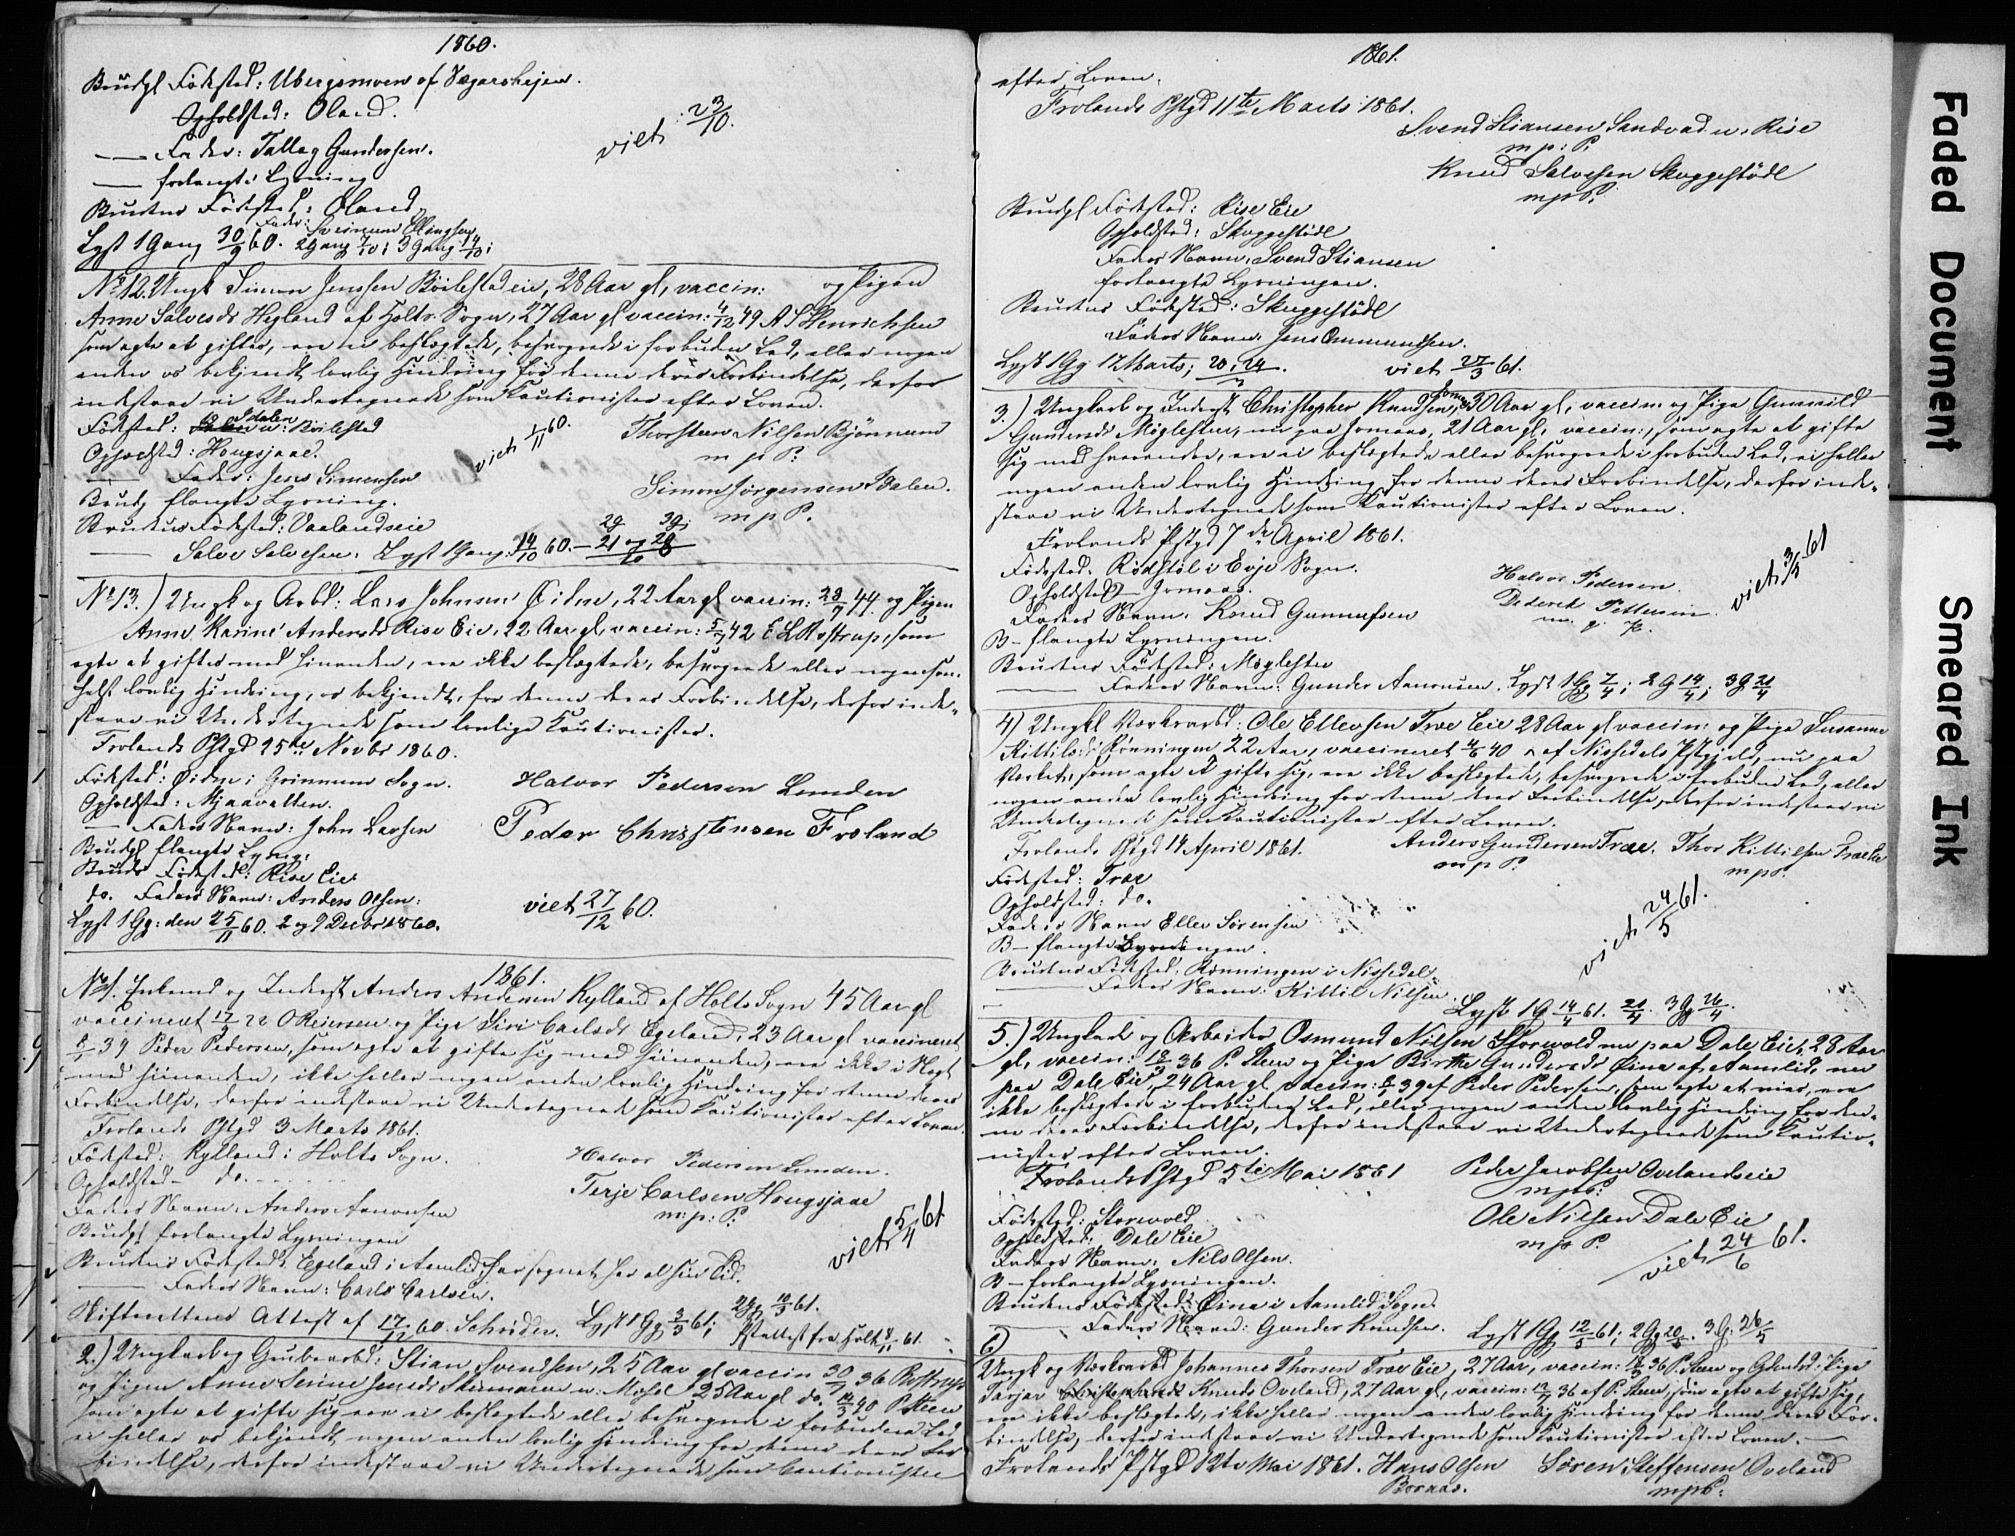 1860.
Brudgl Fødested: Ubergsmoen af Vegarshejen.
Opholdsted: Oland.
— Fader: Tallag Gundersen.
— forlangte Lysning
viet 23/10.
Brudens Fødested: Oland
Fader: Ellingsen
Lyst 1 Gang 30/9 60. 2 Gang 7/10; 3 Gang 14/10;
No 12. Ungk Simon Jensen Bøilestadeie, 28 Aar gl, vaccin: og Pigen
Anne Salvesdr Hegland af Holts Sogn, 27 Aar gl vaccin: 4/12 49 A S Henrichsen
som agte at giftes, ere ei beslægtede, besvogrede i forbuden Led, eller nogen
anden os bekjendt lovlig Hindring for denne deres Forbindelse, derfor
indestaae vi Undertegnede som Kautionister efter Loven.
Fødested: Idalen u: Bøilestad
Opholdsted: Hougsjaae.
— Fader: Jens Simensen
Brudg flangte Lysning.
viet 1/11 60.
Thorsteen Nilsen Bjønnum
m p P.
Simon Jørgensen Dalen.
m p P.
Brudens Fødested: Vaalandseie
— Salve Salvesen. Lyst 1 Gang: 14/10 60. — 2g 21 og 3g 28/10
No 13.) Ungk og Arbd: Lars Johnsen Øidne, 22 Aar gl vaccin: 28/7 44. og Pigen
Anne Karine Andersdr Rise Eie, 22 Aar gl, vaccin: 5/7 42 E L Rostrup, som
agte at giftes med hinanden, ere ikke beslægtede, besvogrede eller nogensom-
helst lovlig Hindring, os bekjendt, for denne deres Forbindelse, derfor inde-
staae vi Undertegnede som lovlige Kautionister.
Frolands Pstgd 25de Novbr 1860.
Fødested: Øidne i Grimnum Sogn.
Opholdsted: Mjaavatten.
— Faders Navn: John Larsen
Brudgl flangte Lysng:
Brudes Fødested: Rise Eie
do. Faders Navn: Anders Olsen:
Lyst 1 Gg: den 25/11 60. 2 og 9 Decbr 1860.
Halvor Pedersen Lunden
Peder Christensen Froland
viet 27/12 60.
1861.
No 1. Enkemd og Inderst Anders Andersen Rylland af Holts Sogn 45 Aar gl
vaccineret 17/9 22 O Reiersen og Pige Siri Carlsdr Egeland, 23 Aar gl vaccineret
8/7 39 Peder Pedersen, som agte at gifte sig med hinanden, ere ikke i Slægt
med hinanden, ikke heller nogen anden lovlig Hindring for denne deres
Forbindelse, derfor indestaae vi Undertegnede som Kautionister efter Loven.
Frolands Pstgd 3 Marts 1861.
Fødested: Rylland i Holts Sogn.
Opholdsted — do.
Faders Navn: Anders Aanonsen
Brudgl forlangte Lysningen
Halvor Pedersen Lunden.
Terje Carlsen Hougsjaae
m: p: P:
viet 5/4 61
Brudens Fødested: Egeland i Aamlid,
— Faders Navn: Carls Carlsen.
Skifterettens Attest af 17/12 60. Schrøder. Lyst 1 Gg 3/3 61; 2 Gg 10/3 61.
2.) Ungkarl og Grubearbd: Stian Svendsen, 25 Aar gl vaccin 30/7 36 Rostrup
og Pigen Anne Serine Jensdr 25 Aar gl do. 14/3 40 P Steen
som agte at gifte sig ere ei beslægtede eller besvogrede i forbudne Led
ei heller os bekjendt nogen anden lovlig Hindring for denne deres For
bindelse, derfor indestaae vi Undertegnede som Cautionister
1861.
efter Loven.
Frolands Pstgd 11te Marts 1861.
Svend Stiansen Sandvad u. Rise
m p: P.
Knud Salvesen Skuggestödl
m p P.
Brudgl Fødested: Rise Eie
Opholdsted: Skuggestödl
Faders Navn: Svend Stiansen
forlangte Lysningen.
Brudens Fødested: Skuggestödl
Faders Navn: Jens Ommundsen.
Lyst 1 Gg 17 Marts; 20, 24/3. viet 27/3 61.
3.) Ungkarl og Inderst Christopher Knudsen, Jomaas 30 Aar gl, vaccin og Pige Gunnild
Gundersdr Møglestue, nu paa Jomaas, 21 Aar gl, vaccin:, som agte at gifte
sig med hverandre, ere ei beslægtede eller besvogrede i forbuden Led, ei heller
nogen anden lovlig Hindring for denne deres Forbindelse, derfor inde-
staae vi Undertegnede som Kautionister efter Loven.
Frolands Pstgd 7de April 1861.
Fødested. Rødstöl i Evje Sogn.
Opholdsted — Jomaas.
Faders Navn. Knud Gunnufsen
B — flangte Lysningen.
Halvor Pedersen.
Dederek Pettersen
m. p. P.
viet 3/5 61
Brudens Fødested: Møglestue
— Faders Navn: Gunder Aanonsen. Lyst 1 Gg 7/4; 2 G 14/4; 3 G 21/4
4) Ungkl Værksarbd: Ole Ellevsen Træe Eie 28 Aar gl vaccin: og Pige Susanne
Kittilsdr Rønningen 22 Aar, vaccineret 4/6 40 af Nissedals Pstgjeld, nu paa
Værket, som agte at gifte sig, ere ikke beslægtede, besvogrede i forbuden Led, eller
nogen anden lovlig Hindring for denne deres Forbindelse, derfor indestaae vi
Undertegnede som Kautionister efter Loven.
Frolands Pstgd 14 April 1861.
Anders Gundersen Træe. Thor Kittilsen Træeie
m p P. m p P.
Fødested: Træe
Opholdsted: do.
Faders Navn Ellev Sørensen
B — flangte Lysningen.
viet 24/5 61.
Brudens Fødested. Rønningen i Nissedal.
— Faders Navn: Kittil Nilsen. Lyst 1 G 14/4 61. 21/4. 3 Gg 26/4.
5.) Ungkarl og Arbeider Osmund Nilsen Storvold nu paa Dale Eie, 28 Aar
gl, vaccin: 18/9 36 P. Steen og Pige Birthe Gundersdr Øina af Aamlid, nu
paa Dale Eie, 24 Aar gl vaccin: 8/7 39 af Peder Pedersen, som agte at vies, ere
ikke beslægtede i forbuden Led, eller nogen anden lovlig Hindring for den-
ne deres Forbindelse, derfor indestaae vi Undertegnede som Kautio-
nister efter Loven.
Frolands Pstgd 5te Mai 1861
Peder Jacobsen Ovelandseie
m p P.
Ole Nilsen Dale Eie
m p P.
Fødested: Storvold
Opholdsted: Dale Eie
Faders Navn: Nils Olsen.
B — forlangte Lysningen.
viet 24/6 61.
Brudens Fødested: Øina i Aamlid Sogn.
— Faders Navn: Gunder Knudsen. Lyst 1 Gg 12/5 61; 2 Gg 20/5. 3 G: 26/5
6)
Ungk og Værksarbd Johannes Thorsen Træe Eie, 27 Aar, vaccin: 18/9 36 P. Steen og Pige
Tarjer Knudsdr Oveland, 27 Aar gl, vaccin: 13/11 36 af P. Steen, som agte at gifte sig,
ere ikke beslægtede, ikke heller nogen anden lovlig Hindring for denne deres For-
bindelse, derfor indestaae vi Undertegnede som Kautionister efter Loven. —
Frolands Pstgd 12te Mai 1861. Hans Olsen Søren Steffensen Oveland
Bornas. m p P:
Faded Document
Smeared Ink